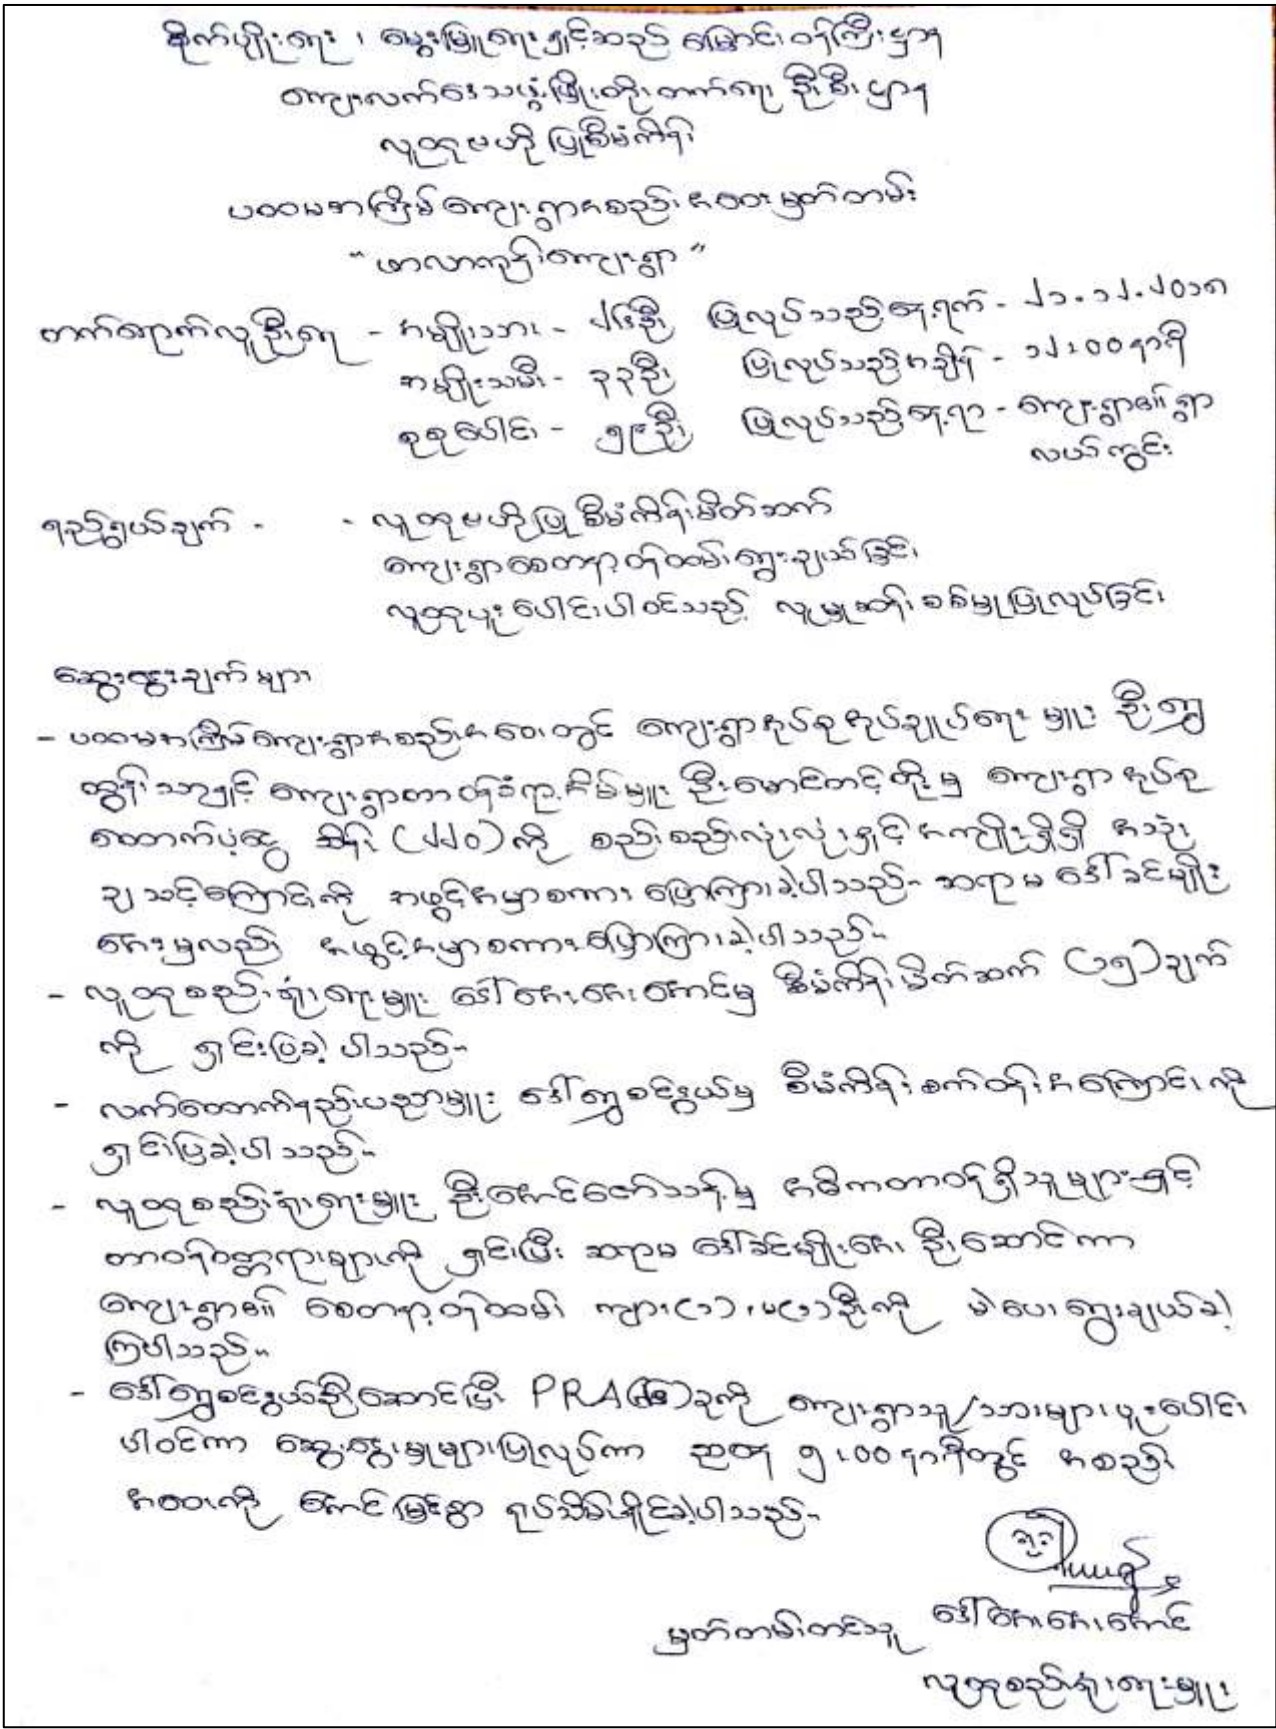 စိုက်ပျိုးရေး ၊ မွေးမြူရေးနှင့်ဆည်မြောင်းဝန်ကြီးဌာန
ကျေးလက်ဒေသဖွံ့ဖြိုးတိုးတက်ရေးဦးစီးဌာန
လူထုဗဟိုပြုစီမံကိန်း
ပထမအကြိမ်ကျေးရွာအစည်းအဝေးမှတ်တမ်း
" ဖာလာကုန်းကျေးရွာ "
တက်ရောက်လူဦးရေ - အမျိုးသား - ၂၆ဦး ပြုလုပ်သည့်နေ့ရက် - ၂၁.၁၂.၂၀၁၈
အမျိုးသမီး - ၃၃ဦး ပြုလုပ်သည့်အချိန် - ၁၂:၀၀နာရီ
စုစုပေါင်း - ၅၉ဦး ပြုလုပ်သည့်နေရာ - ကျေးရွာ၏ရွာ
လယ်ကွင်း
ရည်ရွယ်ချက် - - လူထုဗဟိုပြုစီမံကိန်းမိတ်ဆက်
ကျေးရွာစေတနာ့ဝန်ထမ်းရွေးချယ်ခြင်း
လူထုပူးပေါင်းပါဝင်သည့် လူမှုဆန်းစစ်မှုပြုလုပ်ခြင်း
ဆွေးနွေးချက်များ
- ပထမအကြိမ်ကျေးရွာအစည်းအဝေးတွင် ကျေးရွာအုပ်စုအုပ်ချုပ်ရေးမှူး ဦးရွှေ
ထွန်းသာနှင့် ကျေးရွာတာဝန်ခံရာအိမ်မှူး ဦးမောင်တင့်တို့မှ ကျေးရွာအုပ်စု
ထောက်ပံ့ငွေ သိန်း (၂၂၀)ကို စည်းစည်းလုံးလုံးနှင့်အကျိုးရှိရှိ အသုံး
ချသင့်ကြောင်းကို အဖွင့်အမှာစကား ပြောကြားခဲ့ပါသည်။ ဆရာမ ဒေါ်ခင်မျိုး
အေးမှလည်း အဖွင့်အမှာစကားပြောကြားခဲ့ပါသည်။
- လူထုစည်းရုံးရေးမှူး ဒေါ်အေးအေးအောင်မှ စီမံကိန်းမိတ်ဆက် (၁၅)ချက်
ကို ရှင်းပြခဲ့ပါသည်။
- လက်ထောက်နည်းပညာမှူး ဒေါ်ရွှေစင်နွယ်မှ စီမံကိန်းစက်ဝန်းအကြောင်းကို
ရှင်းပြခဲ့ပါသည်။
- လူထုစည်းရုံးရေးမှူး ဦးအောင်ဇော်သန့်မှ အဓိကတာဝန်ရှိသူများနှင့်
တာဝန်ဝတ္တရားများကို ရှင်းပြီး ဆရာမ ဒေါ်ခင်မျိုးအေး ဦးဆောင်ကာ
ကျေးရွာ၏ စေတနာ့ဝန်ထမ်း ကျား(၁)၊မ(၁)ဦးကို မဲပေးရွေးချယ်ခဲ့
ကြပါသည်။
- ဒေါ်ရွှေစင်နွယ်ဦးဆောင်ပြီး PRA ခုကို ကျေးရွာသူ/သားများပူးပေါင်း
ပါဝင်ကာ ဆွေးနွေးမှုများပြုလုပ်ကာ ညနေ ၅:၀၀နာရီတွင် အစည်း
အဝေးကို အောင်မြင်စွာ ရုပ်သိမ်းနိုင်ခဲ့ပါသည်။
မှတ်တမ်းတင်သူ ဒေါ်အေးအေးအောင်
လူထုစည်းရုံးရေးမှူး